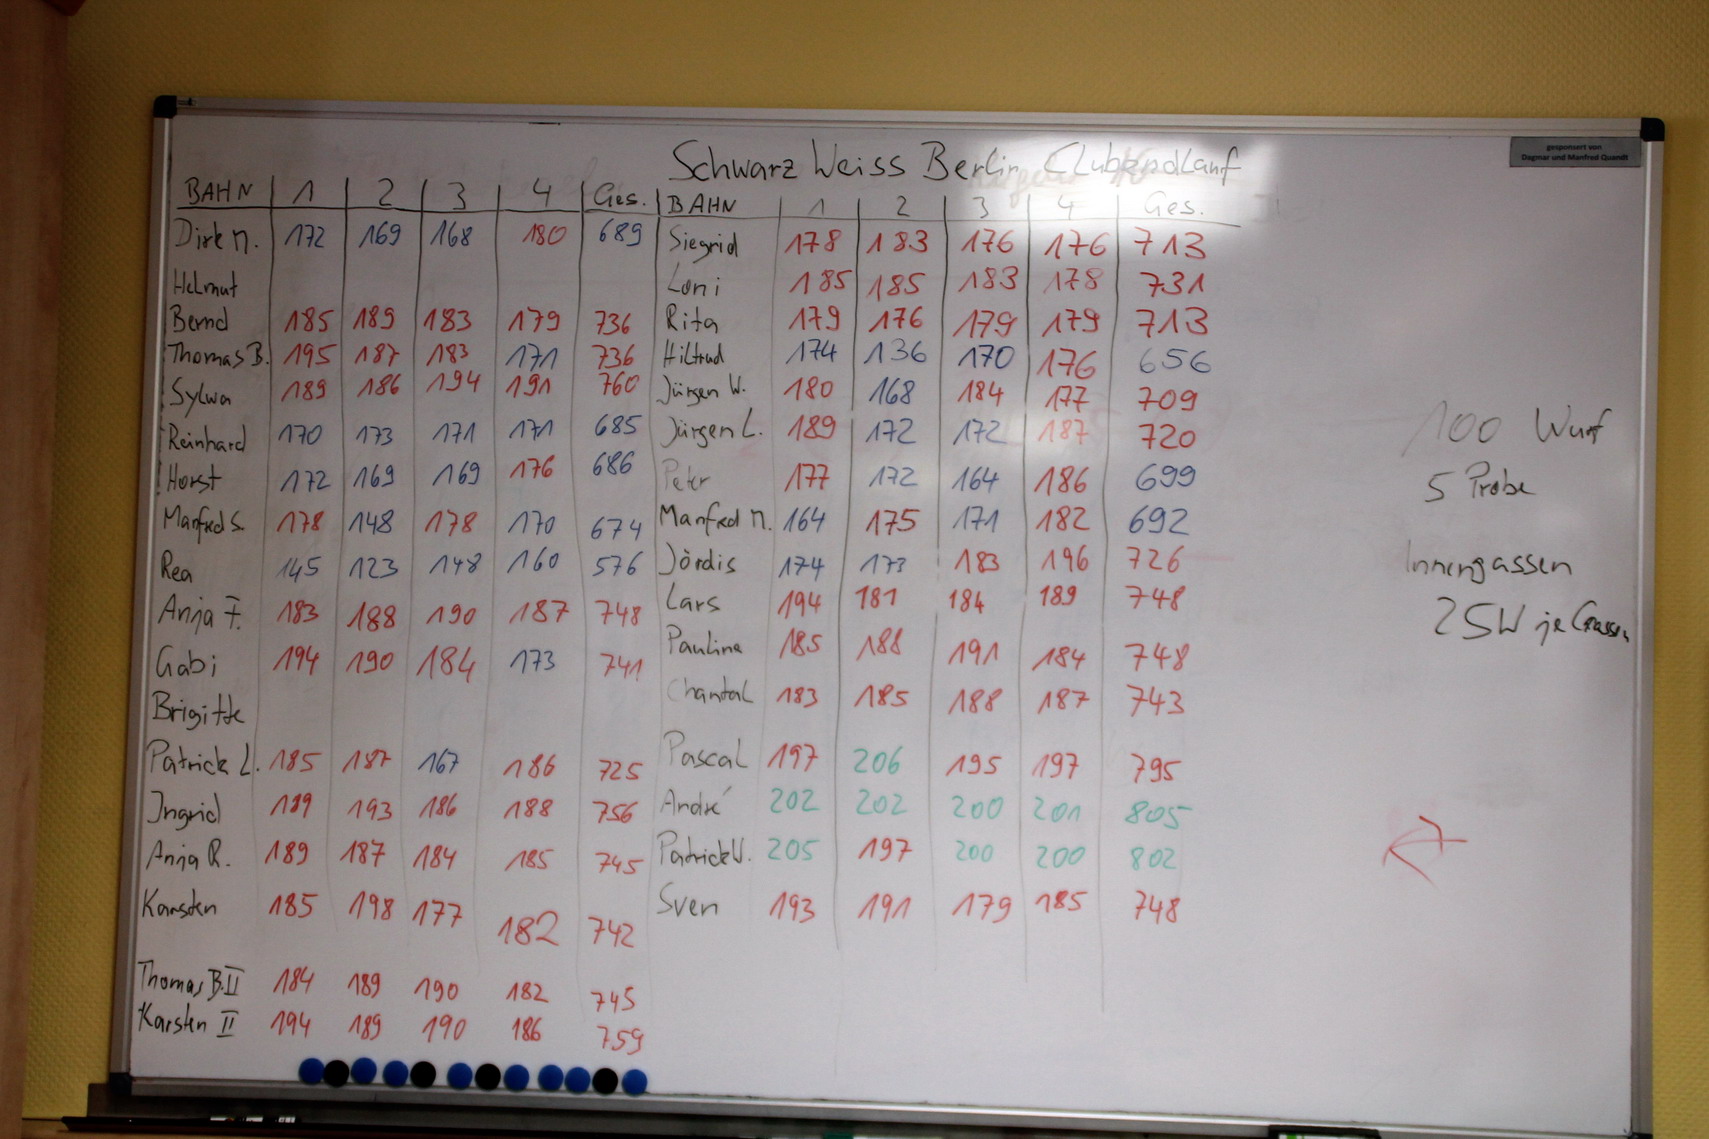 gesponsert von
Dagmar und Manfred Quandt
Schwarz Weiss Berlin Clubendlauf
BAHN 1 2 3 4 Ges.
Dirk M. 172 169 168 180 689
Helmut
Bernd 185 189 183 179 736
Thomas B. 195 187 183 171 736
Sylwa 189 186 194 191 760
Reinhard 170 173 171 171 685
Horst 172 169 169 176 686
Manfred S. 178 148 178 170 674
Rea 145 123 148 160 576
Anja F. 183 188 190 187 748
Gabi 194 190 184 173 741
Brigitte
Patrick L. 185 187 167 186 725
Ingrid 189 193 186 188 756
Anja R. 189 187 184 185 745
Karsten 185 198 177 182 742
Thomas B. II 184 189 190 182 745
Karsten II 194 189 190 186 759
BAHN 1 2 3 4 Ges.
Siegrid 178 183 176 176 713
Loni 185 185 183 178 731
Rita 179 176 179 179 713
Hiltrud 174 136 170 176 656
Jürgen W. 180 168 184 177 709
Jürgen L. 189 172 172 187 720
Peter 177 172 164 186 699
Manfred M. 164 175 171 182 692
Jördis 174 173 183 196 726
Lars 194 181 184 189 748
Pauline 185 188 191 184 748
Chantal 183 185 188 187 743
Pascal 197 206 195 197 795
André 202 202 200 201 805
Patrick W. 205 197 200 200 802
Sven 193 191 179 185 748
100 Wurf
5 Probe
Innengassen
25W je Gassen